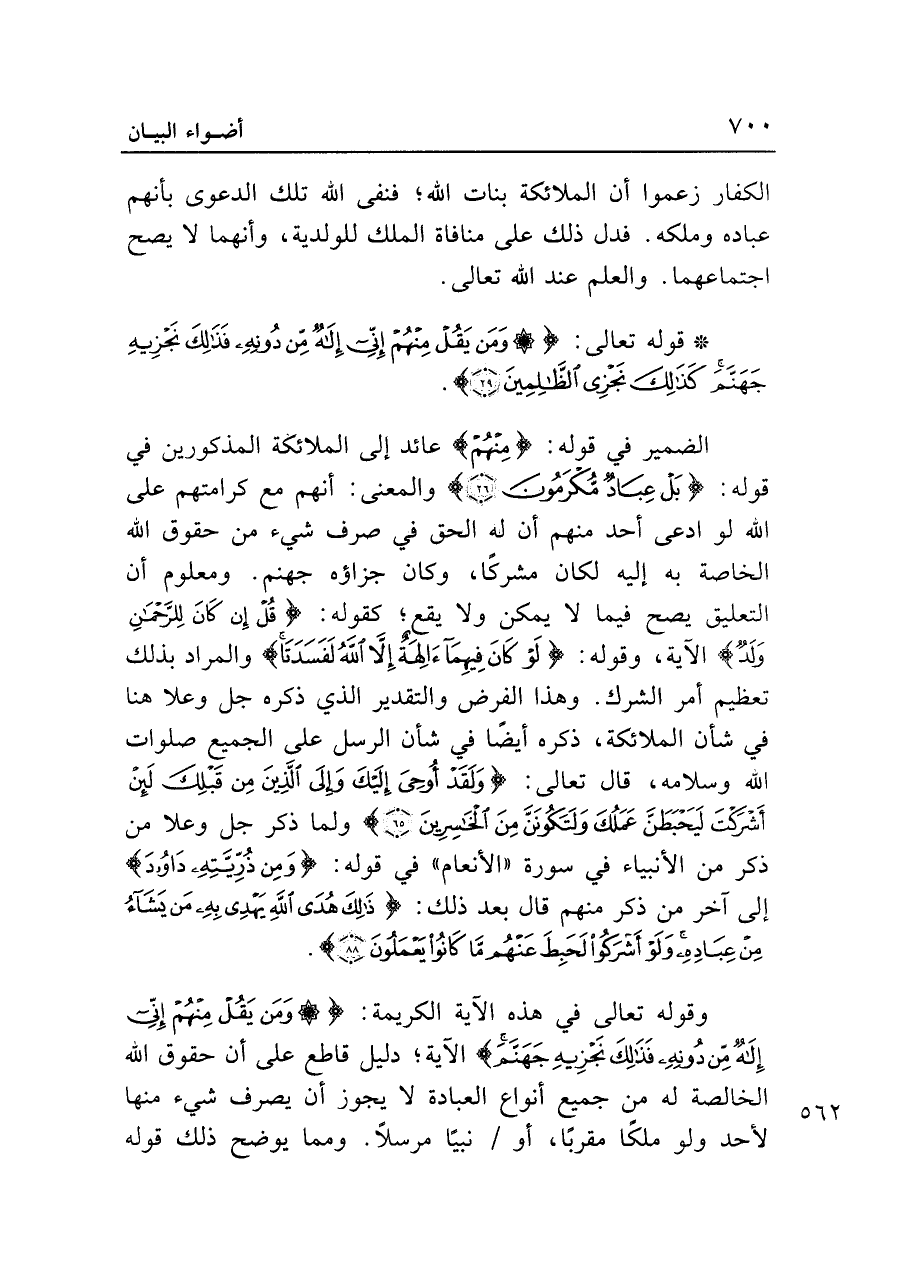 ٧٠٠ أضـواء البيـان
الكفار زعموا أن الملائكة بنات الله؛ فنفى الله تلك الدعوى بأنهم
عباده وملكه. فدل ذلك على منافاة الملك للولدية، وأنهما لا يصح
اجتماعهما. والعلم عند الله تعالى.
* قوله تعالى: ﴿ ۞ وَمَن يَقُلْ مِنْهُمْ إِنِّىٓ إِلَٰهٌ مِّن دُونِهِۦ فَذَٰلِكَ نَجْزِيهِ
جَهَنَّمَ ۚ كَذَٰلِكَ نَجْزِى ٱلظَّٰلِمِينَ ٢٩﴾.
الضمير في قوله: ﴿مِنْهُمْ﴾ عائد إلى الملائكة المذكورين في
قوله: ﴿بَلْ عِبَادٌ مُّكْرَمُونَ ٢٦﴾ والمعنى: أنهم مع كرامتهم على
الله لو ادعى أحد منهم أن له الحق في صرف شيء من حقوق الله
الخاصة به إليه لكان مشركًا، وكان جزاؤه جهنم. ومعلوم أن
التعليق يصح فيما لا يمكن ولا يقع؛ كقوله: ﴿قُلْ إِن كَانَ لِلرَّحْمَٰنِ
وَلَدٌ﴾ الآية، وقوله: ﴿لَوْ كَانَ فِيهِمَآ ءَالِهَةٌ إِلَّا ٱللَّهُ لَفَسَدَتَا ۚ﴾ والمراد بذلك
تعظيم أمر الشرك. وهذا الفرض والتقدير الذي ذكره جل وعلا هنا
في شأن الملائكة، ذكره أيضًا في شأن الرسل على الجميع صلوات
الله وسلامه، قال تعالى: ﴿وَلَقَدْ أُوحِىَ إِلَيْكَ وَإِلَى ٱلَّذِينَ مِن قَبْلِكَ لَئِنْ
أَشْرَكْتَ لَيَحْبَطَنَّ عَمَلُكَ وَلَتَكُونَنَّ مِنَ ٱلْخَٰسِرِينَ ٦٥﴾ ولما ذكر جل وعلا من
ذكر من الأنبياء في سورة «الأنعام» في قوله: ﴿وَمِن ذُرِّيَّتِهِۦ دَاوُۥدَ﴾
إلى آخر من ذكر منهم قال بعد ذلك: ﴿ذَٰلِكَ هُدَى ٱللَّهِ يَهْدِى بِهِۦ مَن يَشَآءُ
مِنْ عِبَادِهِۦ ۚ وَلَوْ أَشْرَكُوا۟ لَحَبِطَ عَنْهُم مَّا كَانُوا۟ يَعْمَلُونَ ٨٨﴾.
وقوله تعالى في هذه الآية الكريمة: ﴿ ۞ وَمَن يَقُلْ مِنْهُمْ إِنِّىٓ
إِلَٰهٌ مِّن دُونِهِۦ فَذَٰلِكَ نَجْزِيهِ جَهَنَّمَ ۚ﴾ الآية؛ دليل قاطع على أن حقوق الله
الخالصة له من جميع أنواع العبادة لا يجوز أن يصرف شيء منها
٥٦٢
لأحد ولو ملكًا مقربًا، أو / نبيًا مرسلاً. ومما يوضح ذلك قوله